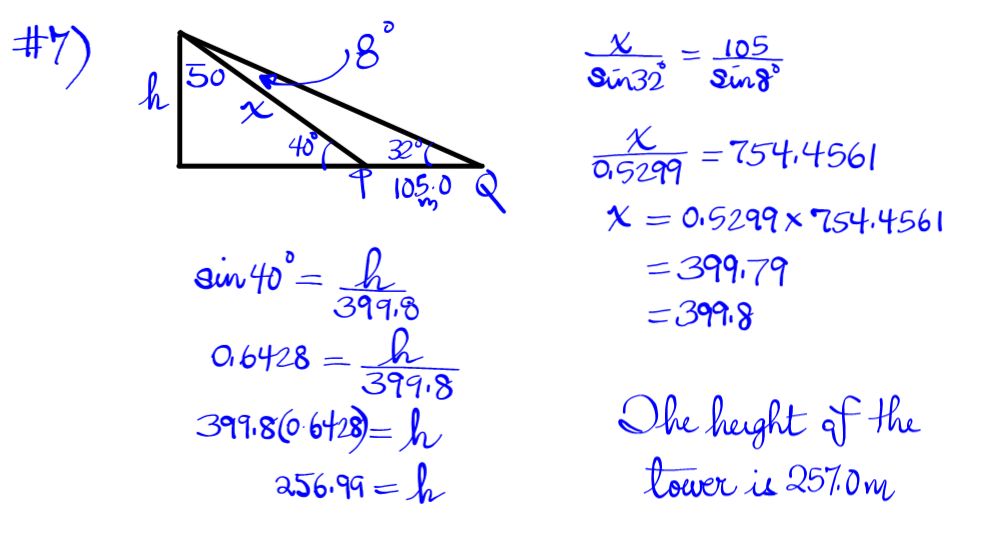 #7)
8°
h
50
x
40°
32°
P
105.0
m
Q
sin40° = h/399.8
0.6428 = h/399.8
399.8(0.6428) = h
256.99 = h
x/sin32° = 105/sin8°
x/0.5299 = 754.4561
x = 0.5299 × 754.4561
= 399.79
= 399.8
The height of the
tower is 257.0m